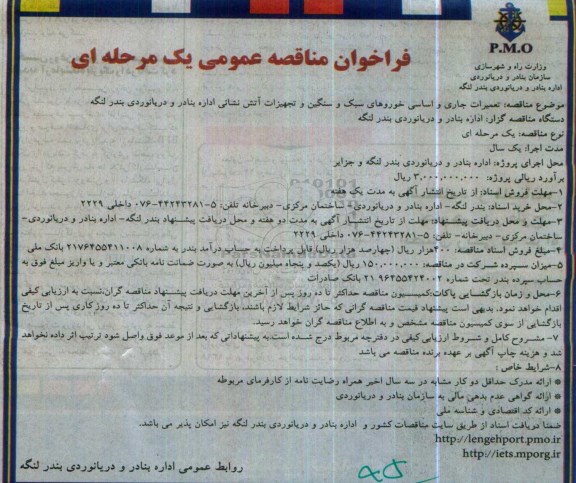 P.M.O
وزارت راه و شهرسازی
سازمان بنادر و دریانوردی
اداره بنادر و دریانوردی بندر لنگه
فراخوان مناقصه عمومی یک مرحله ای
موضوع مناقصه: تعمیرات جاری و اساسی خوروهای سبک و سنگین و تجهیزات آتش نشانی اداره بنادر و دریانوردی بندر لنگه
دستگاه مناقصه گزار: اداره بنادر و دریانوردی بندر لنگه
نوع مناقصه: یک مرحله ای
مدت اجرا: یک سال
محل اجرای پروژه: اداره بنادر و دریانوردی بندر لنگه و جزایر
برآورد ریالی پروژه: ۳,۰۰۰,۰۰۰,۰۰۰ ریال
۱-مهلت فروش اسناد: از تاریخ انتشار آگهی به مدت یک هفته
۲-محل خرید اسناد: بندر لنگه - اداره بنادر و دریانوردی- ساختمان مرکزی- دبیرخانه تلفن: ۵-۴۴۲۴۳۲۸۱-۰۷۶ داخلی ۲۲۲۹
۳-مهلت و محل دریافت پیشنهاد: مهلت از تاریخ انتشار آگهی به مدت دو هفته و محل دریافت پیشنهاد بندر لنگه- اداره بنادر و دریانوردی-
ساختمان مرکزی- دبیرخانه- تلفن: ۵-۴۴۲۴۳۲۸۱-۰۷۶ داخلی ۲۲۲۹
۴-مبلغ فروش اسناد مناقصه: ۴۰۰هزار ریال (چهارصد هزار ریال) قابل پرداخت به حساب درآمد بندر به شماره ۲۱۷۶۴۵۵۴۱۱۰۰۸ بانک ملی
۵-میزان سپرده شرکت در مناقصه: ۱۵۰,۰۰۰,۰۰۰ ریال (یکصد و پنجاه میلیون ریال) به صورت ضمانت نامه بانکی معتبر و یا واریز مبلغ فوق به
حساب سپرده بندر تحت شماره ۲۱۰۹۶۴۵۵۴۲۴۰۰۲ بانک صادرات
۶-محل و زمان بازگشایی پاکات:کمیسیون مناقصه حداکثر تا ده روز پس از آخرین مهلت دریافت پیشنهاد مناقصه گران،نسبت به ارزیابی کیفی
اقدام خواهد نمود. بدیهی است پیشنهاد قیمت مناقصه گرانی که حائز شرایط لازم باشند، بازگشایی و نتیجه آن حداکثر تا ده روز کاری پس از تاریخ
بازگشایی از سوی کمیسیون مناقصه مشخص و به اطلاع مناقصه گران خواهد رسید.
۷- مشروح کامل و شروط ارزیابی کیفی در دفترچه مربوط درج شده است.به پیشنهاداتی که بعد از موعد فوق واصل شود ترتیب اثر داده نخواهد
شد و هزینه چاپ آگهی بر عهده برنده مناقصه می باشد
۸-شرایط خاص :
* ارائه مدرک حداقل دو کار مشابه در سه سال اخیر همراه رضایت نامه از کارفرمای مربوطه
* ارائه گواهی عدم بدهی مالی به سازمان بنادر و دریانوردی
* ارائه کد اقتصادی و شناسه ملی
ضمنا دریافت اسناد از طریق سایت مناقصات کشور و اداره بنادر و دریانوردی بندر لنگه نیز امکان پذیر می باشد.
http://lengehport.pmo.ir
http://iets.mporg.ir
روابط عمومی اداره بنادر و دریانوردی بندر لنگه